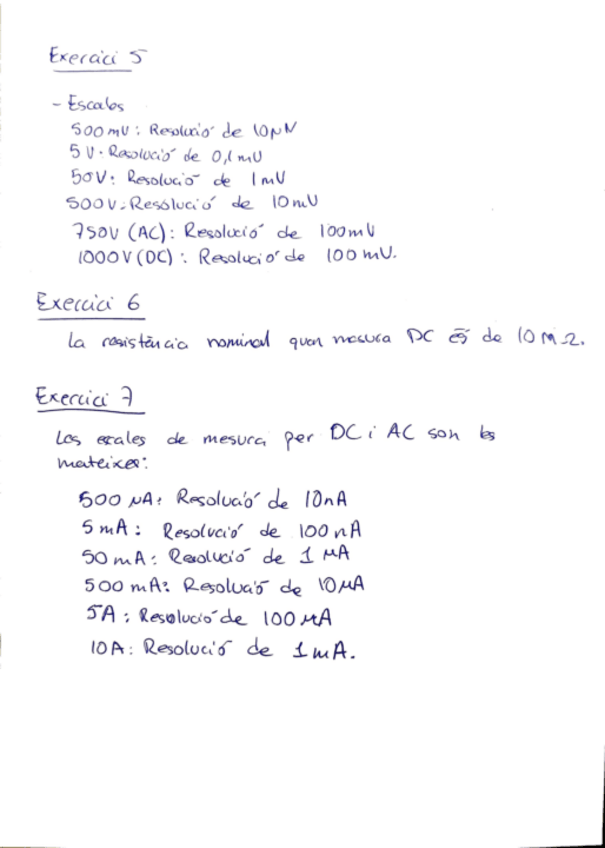 Exercici 5
- Escales
500mV: Resolució de 10µV
5V: Resolució de 0,1mV
50V: Resolució de 1mV
500V: Resolució de 10mV
750V (AC): Resolució de 100mV
1000V (DC): Resolució de 100mV.
Exercici 6
La resistència nominal quan mesura DC és de 10MΩ.
Exercici 7
Les escales de mesura per DC i AC son les
mateixes:
500 µA: Resolució de 10nA
5mA: Resolució de 100nA
50mA: Resolució de 1 µA
500mA: Resolució de 10µA
5A: Resolució de 100µA
10A: Resolució de 1mA.